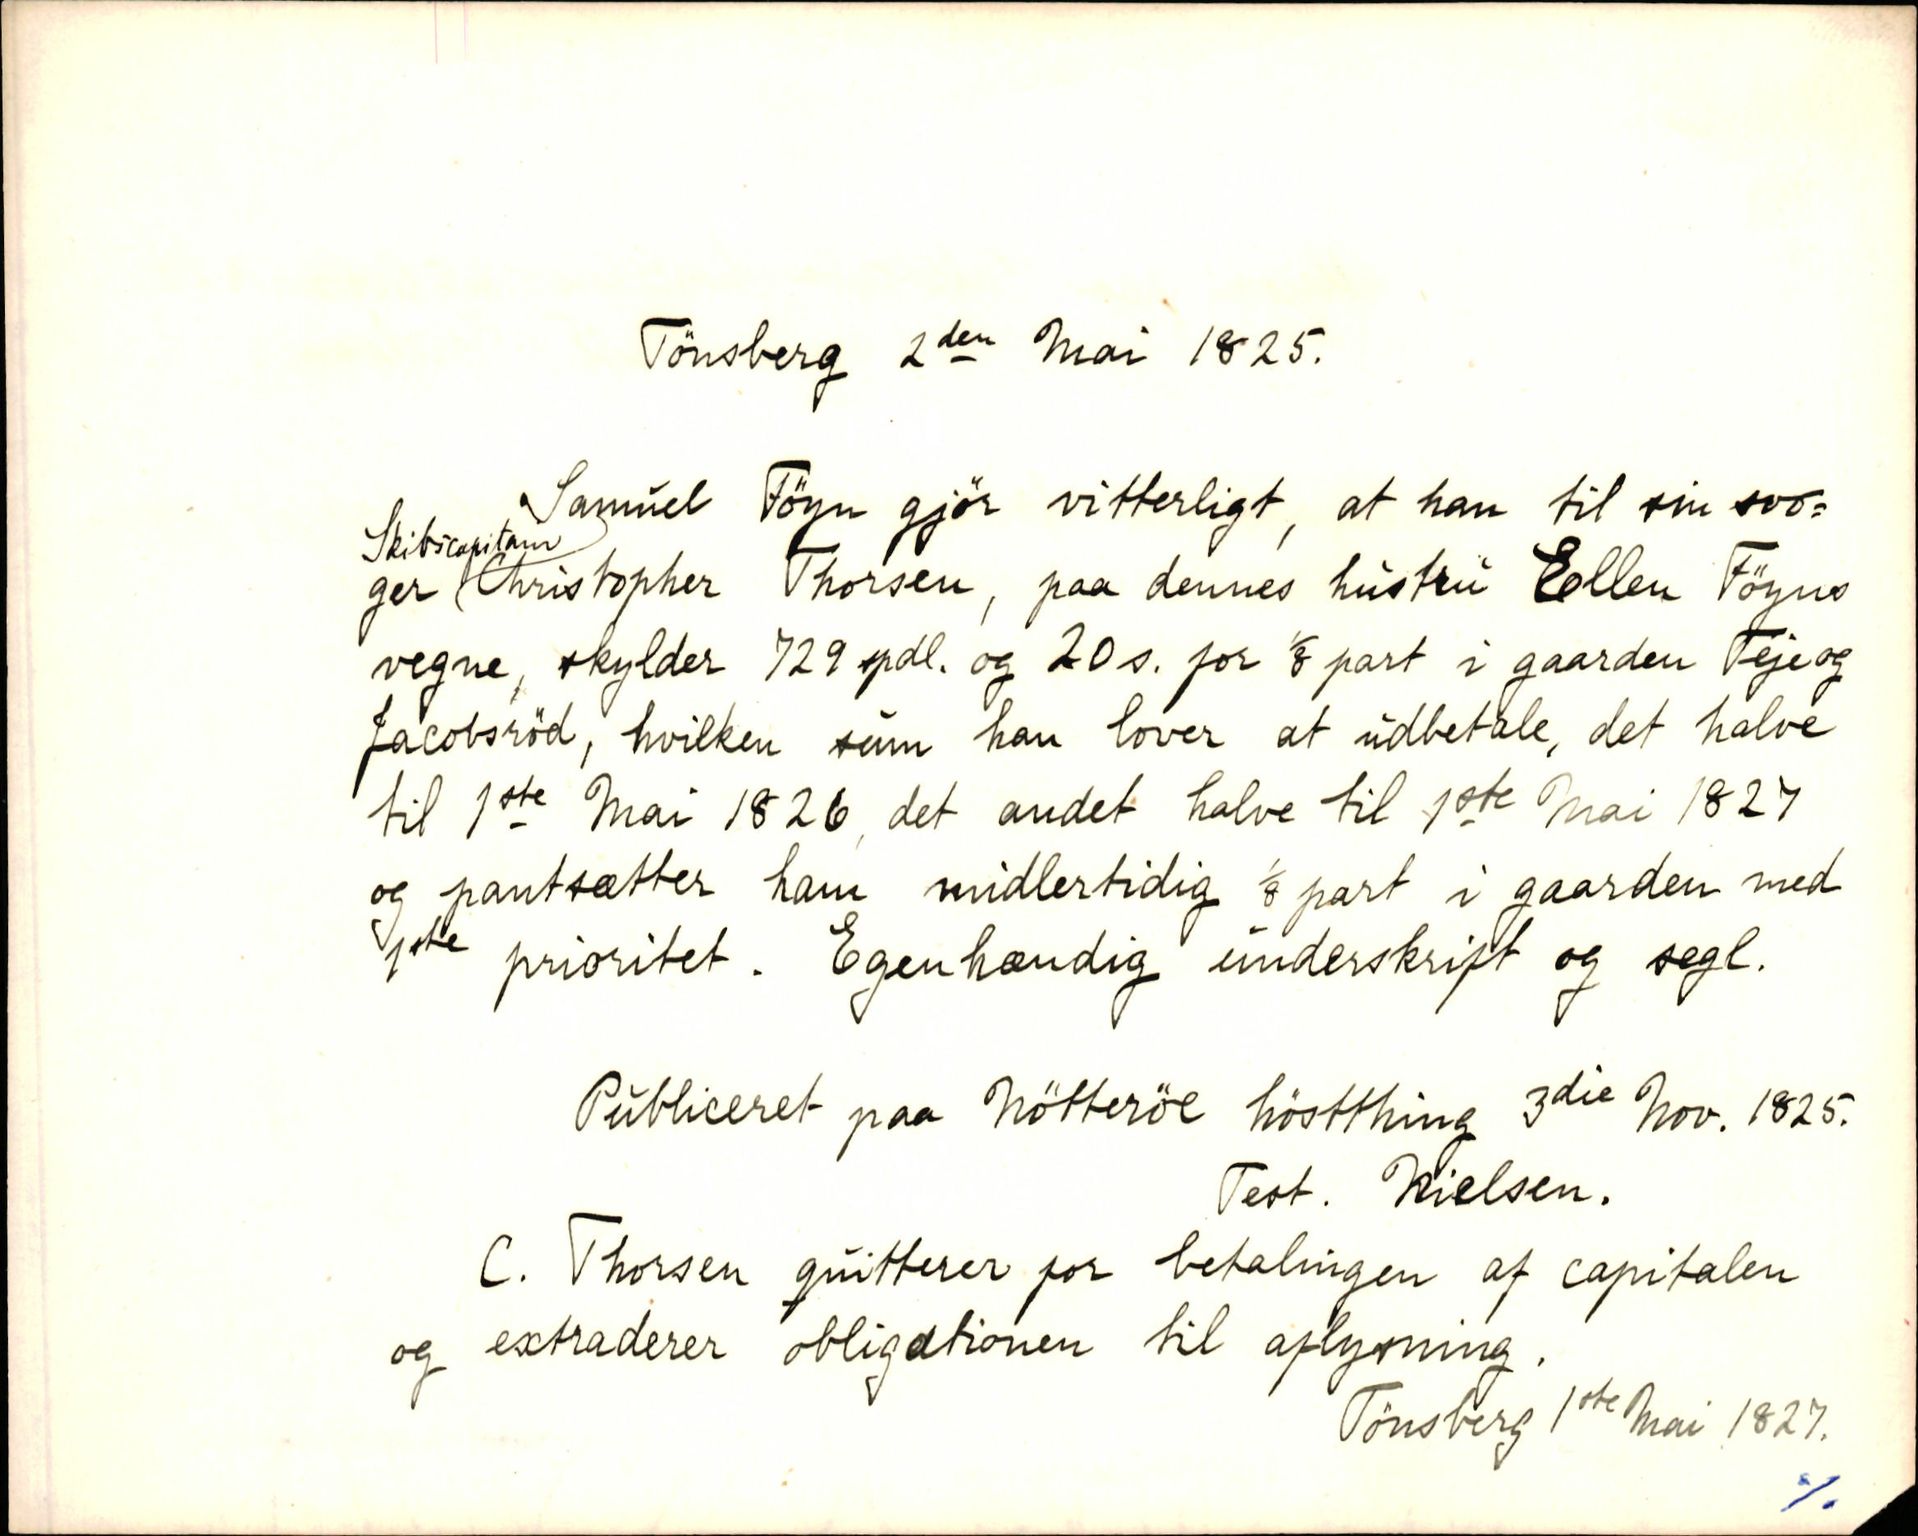 Tönsberg 2den Mai 1825.
Samuel Föyn gjör vitterligt, at han til sin svo=
Skibscapitam
ger Christopher Thorsen, paa dennes hustru Ellen Föyns
vegne, skylder 729 spdl. og 20 s. for 1/8 part i gaarden Teje og
Jacobsröd, hvilken sum han lover at udbetale, det halve
til 1ste Mai 1826, det andet halve til 1ste Mai 1827
og pantsætter ham midlertidig 1/8 part i gaarden med
1ste prioritet. Egenhændig underskrift og segl.
Publiceret paa Nötteröe höstthing 3die Nov. 1825.
Test. Nielsen.
C. Thorsen quitterer for betalingen af capitalen
og extraderer obligationen til aflysning.
Tönsberg 1ste Mai 1827.